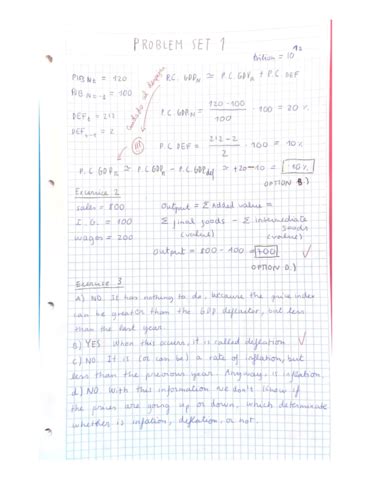 PROBLEM SET 1
billion = 10 12
PIB Nt = 120
PIB N t-1 = 100
P.C. GDPN ≃ P.C. GDPR + P.C. DEF
DEFt = 212
DEFt-1 = 2
P.C. GDPN = 120-100 / 100 · 100 = 20%
P.C. DEF = 212-2 / 2 · 100 = 10%
P.C. GDPR ≃ P.C. GDPN - P.C. GDPdef ≃ +20-10 = 10%
OPTION B.)
Exercise 2
sales = 800
Output = Σ Added value =
I.G. = 100
Σ final goods - Σ intermediate goods
(value) (value)
wages = 200
Output = 800 - 100 = 700
OPTION D.)
Exercise 3
A) NO. It has nothing to do, because the price index
can be greater than the GDP deflactor, but less
than the last year.
B) YES. When this occurs, it is called deflation
c) NO. It is (or can be) a rate of inflation, but
less than the previous year. Anyway, is inflation.
d) NO. With this information we don't know if
the prices are going up or down, which determinate
whether is inflation, deflation or not.